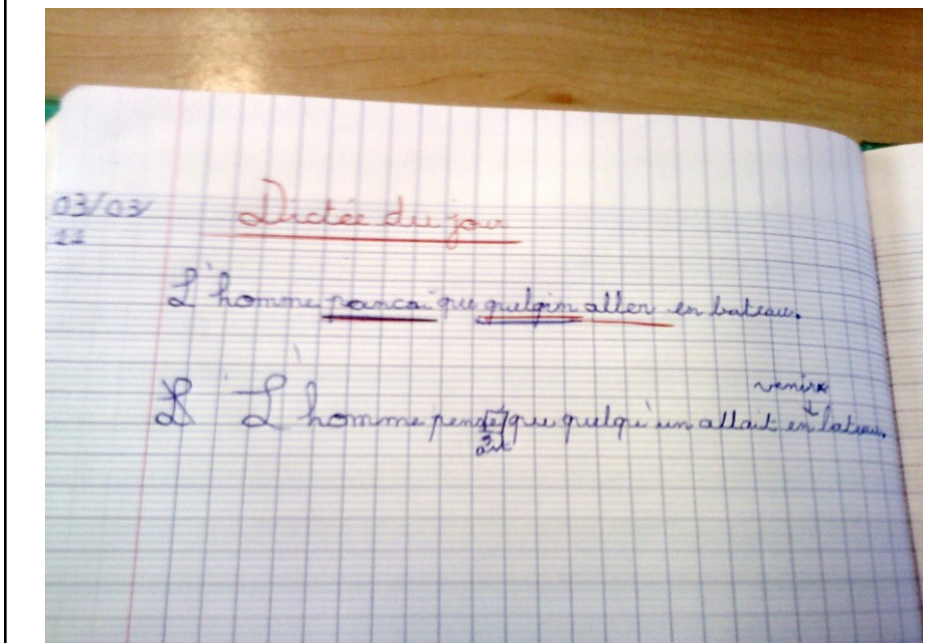 03/03/
22
Dictée du jour
L'homme pancai que quelqin aller en bateau.
venir
L'homme pensé que quelqu'un allait en bateau.